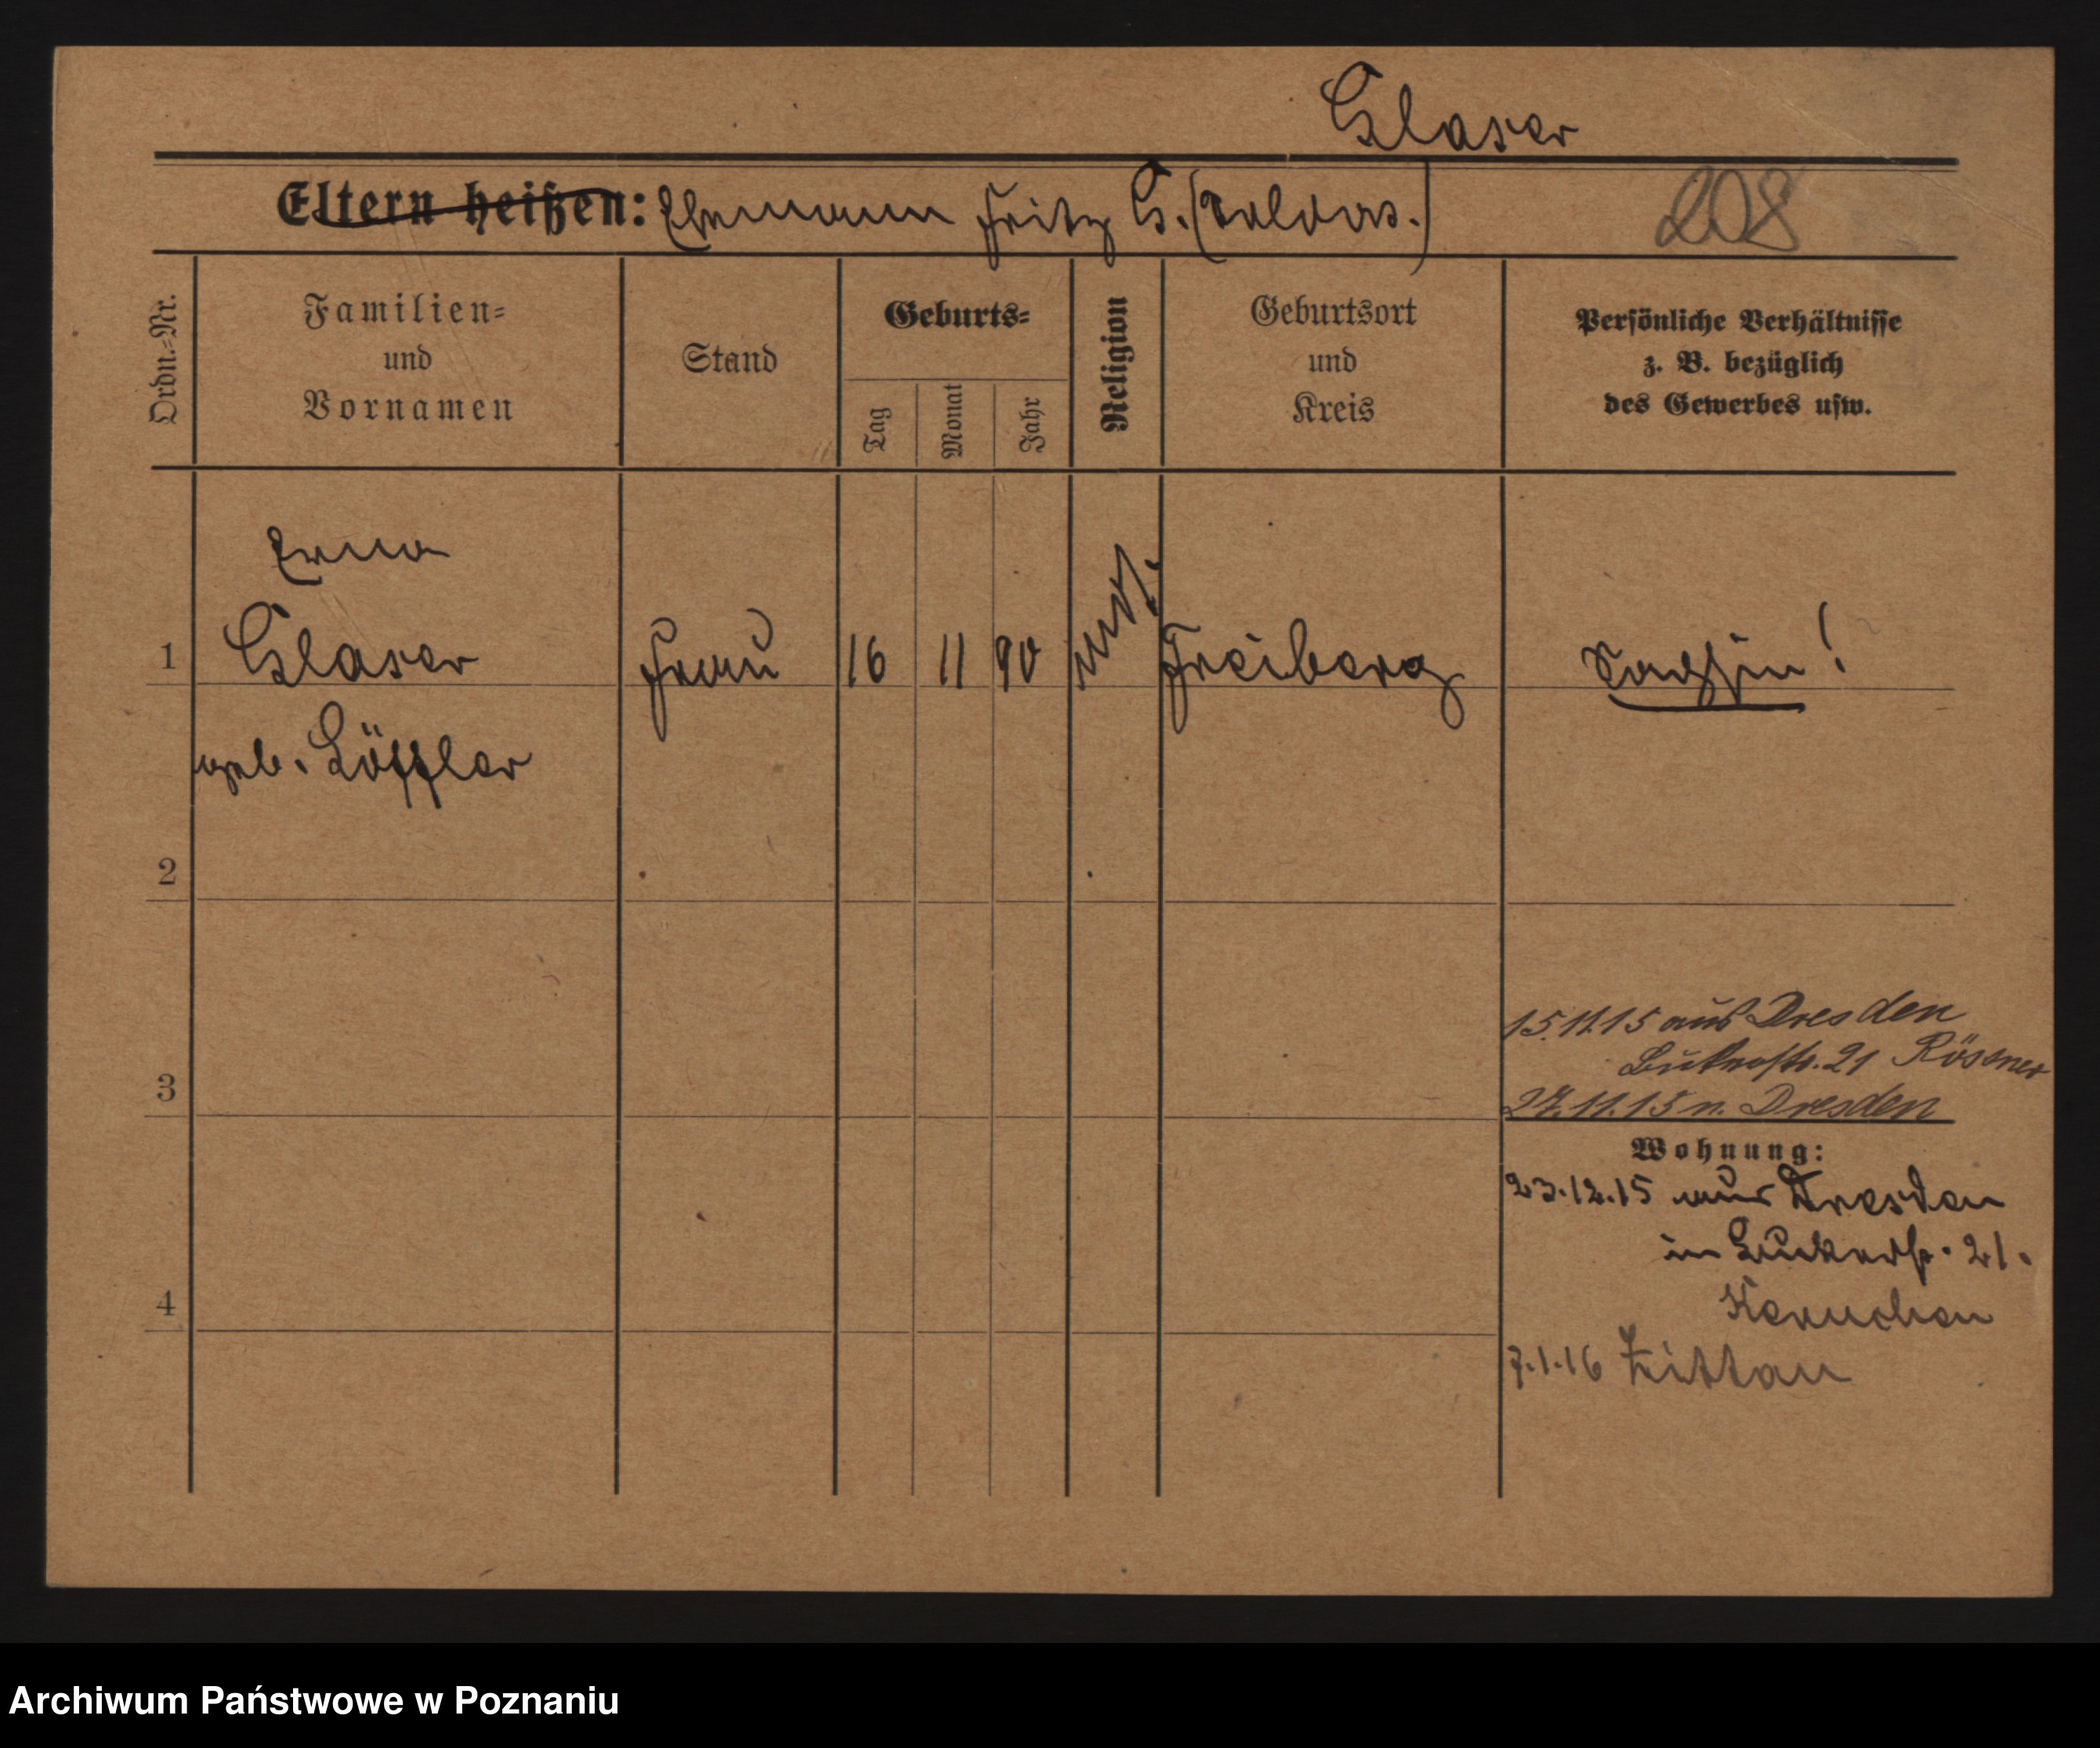 Glaser
Eltern heißen: Ehemann Fritz G. (Soldat.)
208
Ordn.-Nr.
Familien-
und
Vornamen
Stand
Geburts-
Tag
Monat
Jahr
Religion
Geburtsort
und
Kreis
Persönliche Verhältnisse
z. B. bezüglich
des Gewerbes usw.
Erna
1 Glaser Frau 16 11 90 Freiberg Sachsen!
geb. Löffler
2
15.11.15 aus Dresden
21 Rössner
3 27.11.15 n. Dresden
Wohnung:
23.12.15 aus Dresden
in 21.
4
7.1.16 Zittau
Archiwum Państwowe w Poznaniu